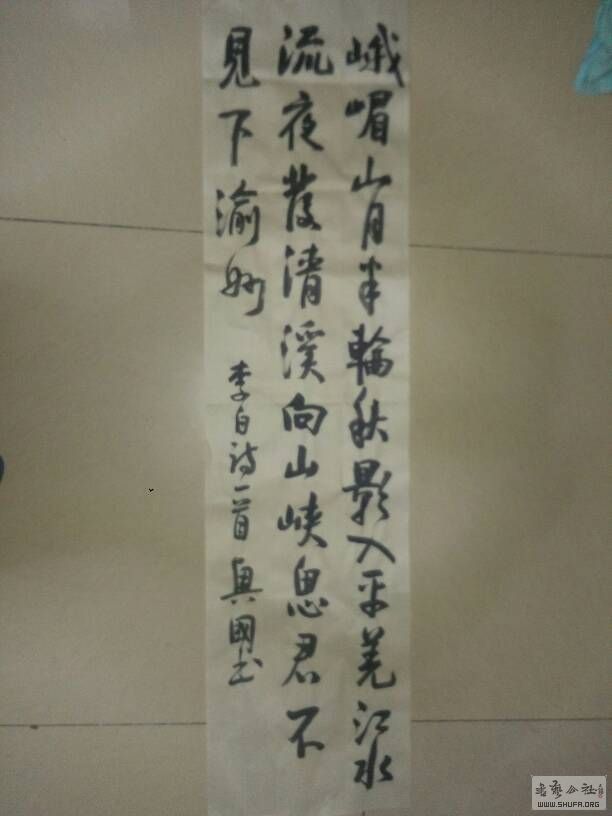 峨嵋山月半輪秋影入平羌江水
流夜發清溪向山峡思君不
見下渝州
李白诗一首 興國书
書藝公社
WWW.SHUFA.ORG